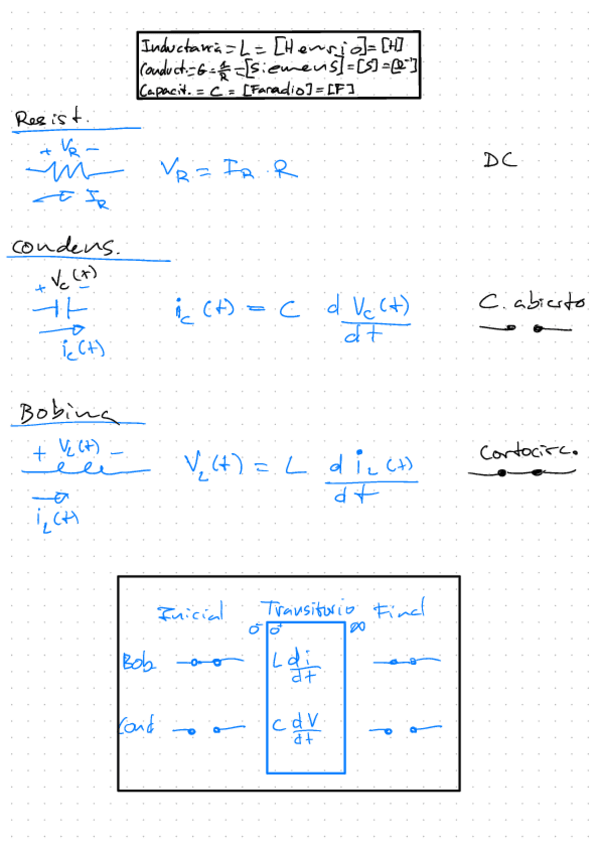 Inductancia = L = [Henrio] = [H]
Conduct. = G = 1/R = [Siemens] = [S] = [Ω⁻¹]
Capacit. = C = [Faradio] = [F]
Resist.
+ V_R −
V_R = I_R · R
DC
I_R
Condens.
V_c(t)
+ −
i_c(t) = C d V_c(t) / dt
C. abierto
i_c(t)
Bobina
+ V_L(t) −
V_L(t) = L d i_L(t) / dt
Cortocirc.
i_L(t)
Inicial Transitorio Final
0⁻ 0⁺ ∞
Bob L di/dt
Cond C dV/dt